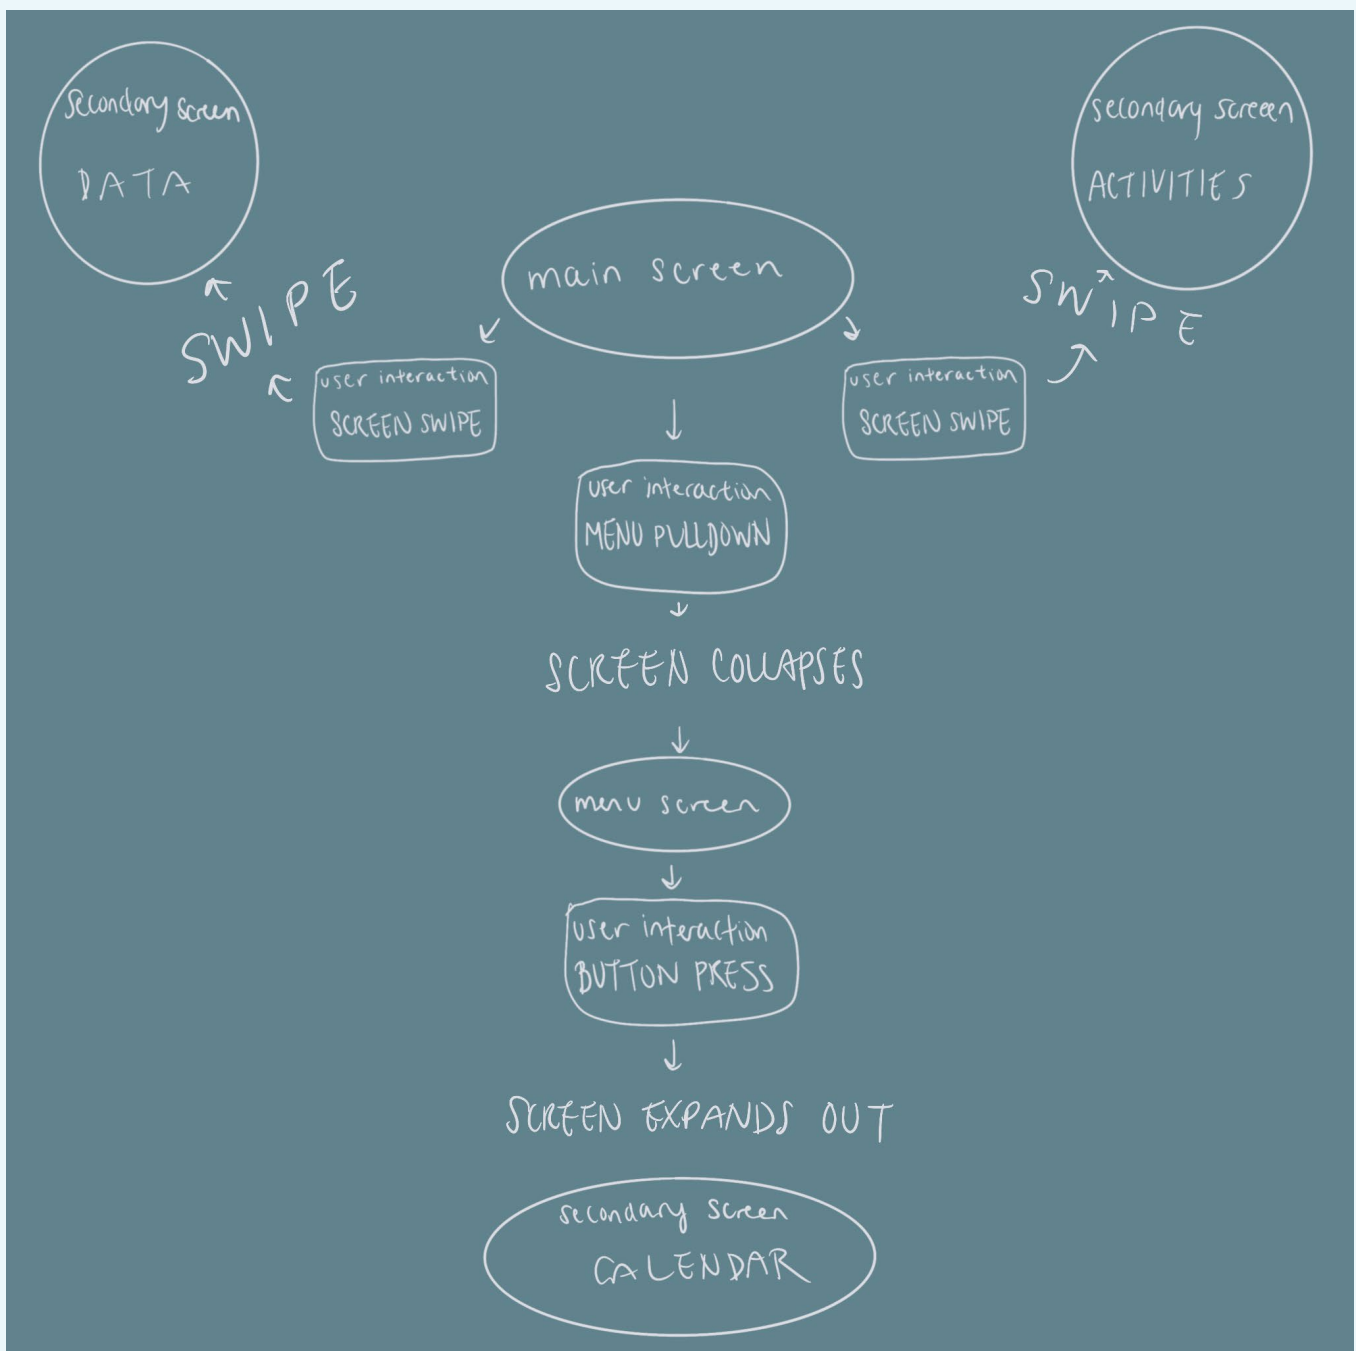 secondary screen
DATA
secondary screen
ACTIVITIES
main screen
SWIPE
SWIPE
user interaction
SCREEN SWIPE
user interaction
SCREEN SWIPE
user interaction
MENU PULLDOWN
SCREEN COLLAPSES
menu screen
user interaction
BUTTON PRESS
SCREEN EXPANDS OUT
secondary screen
CALENDAR